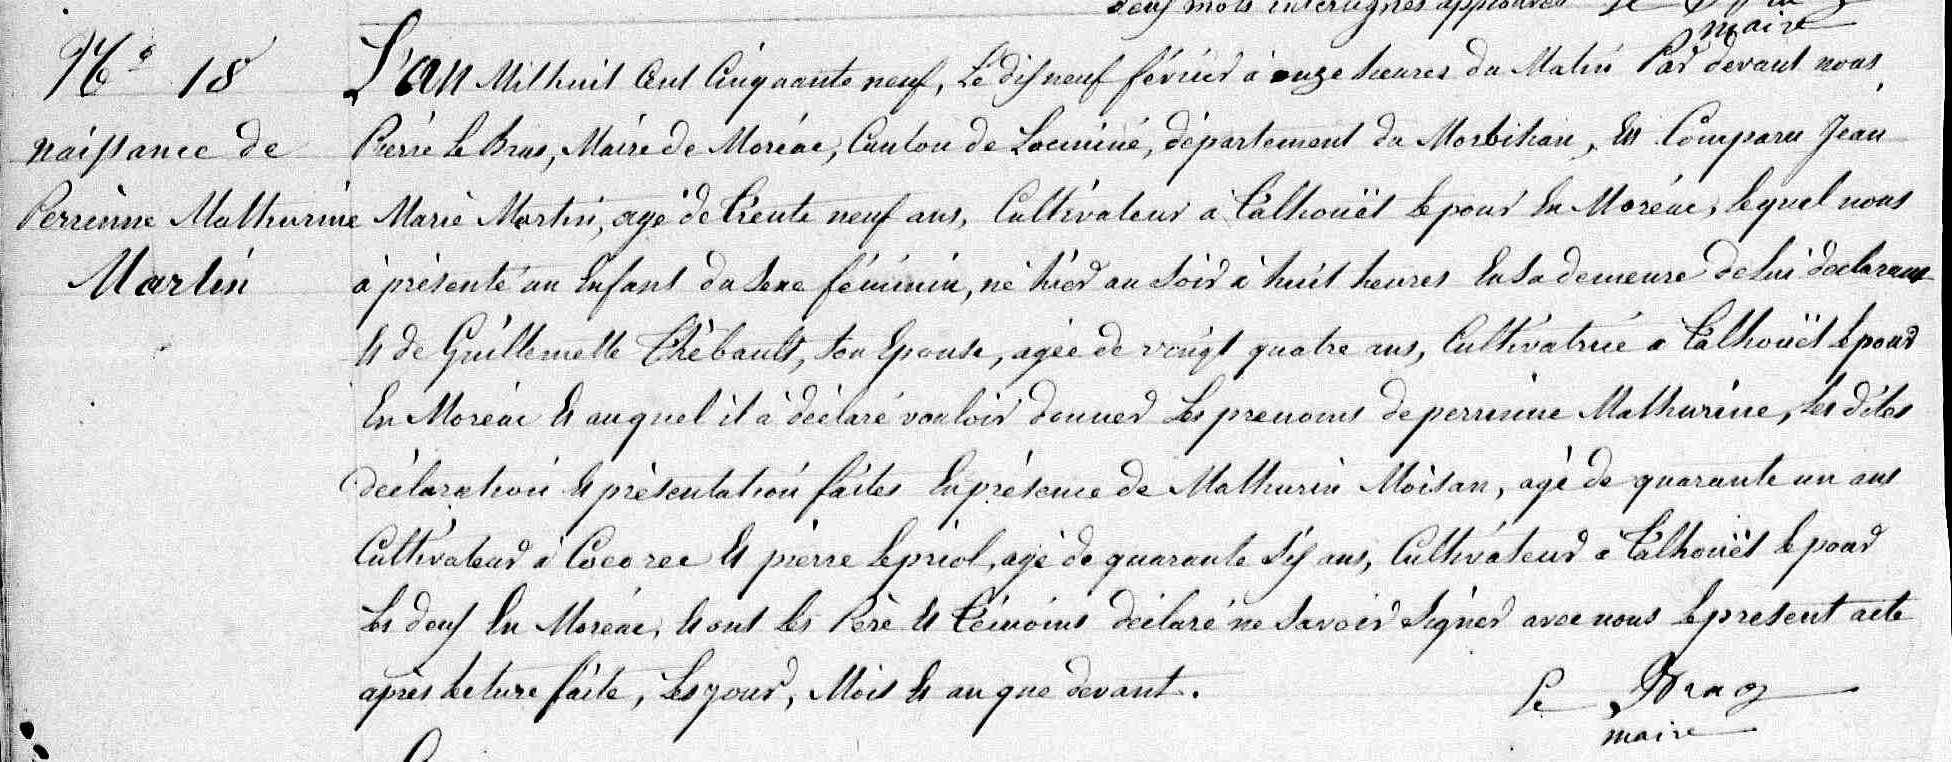 deux mots interlignés approuvés Le
maire
N.º 18
naissance de
Perrinne Mathurine
Martin
L'an Mil huit Cent Cinquante neuf, Le dix neuf février à onze heures du Matin Par devant nous
Pierre Le Bras, Maire de Moréac, Canton de Locminé, département du Morbihan, Est Comparu Jean
Marie Martin, agé de trente neuf ans, Cultivateur à Talhouët Lepour En Moréac, lequel nous
à présenté un Enfant du Sexe féminin, né hier au Soir à huit heures En Sa demeure de lui déclarant
Et de Guillemette Thébault, Son Epouse, agée de vingt quatre ans, Cultivatrice à Talhouët Lepour
En Moréac Et auquel il à déclaré vouloir donner Les prenoms de perrinne Mathurine, Les dites
déclaration Et présentation faites En présence de Mathurin Moisan, agé de quarante un ans
Cultivateur à Cocorec Et pierre Lepriol, agé de quarante Six ans, Cultivateur à Talhouët Lepour
Les deux En Moréac, Et ont Les Père Et Témoins déclaré ne Savoir Signer avec nous Le présent acte
après lecture faite, Les jour, Mois Et an que devant.
Le Bras
maire